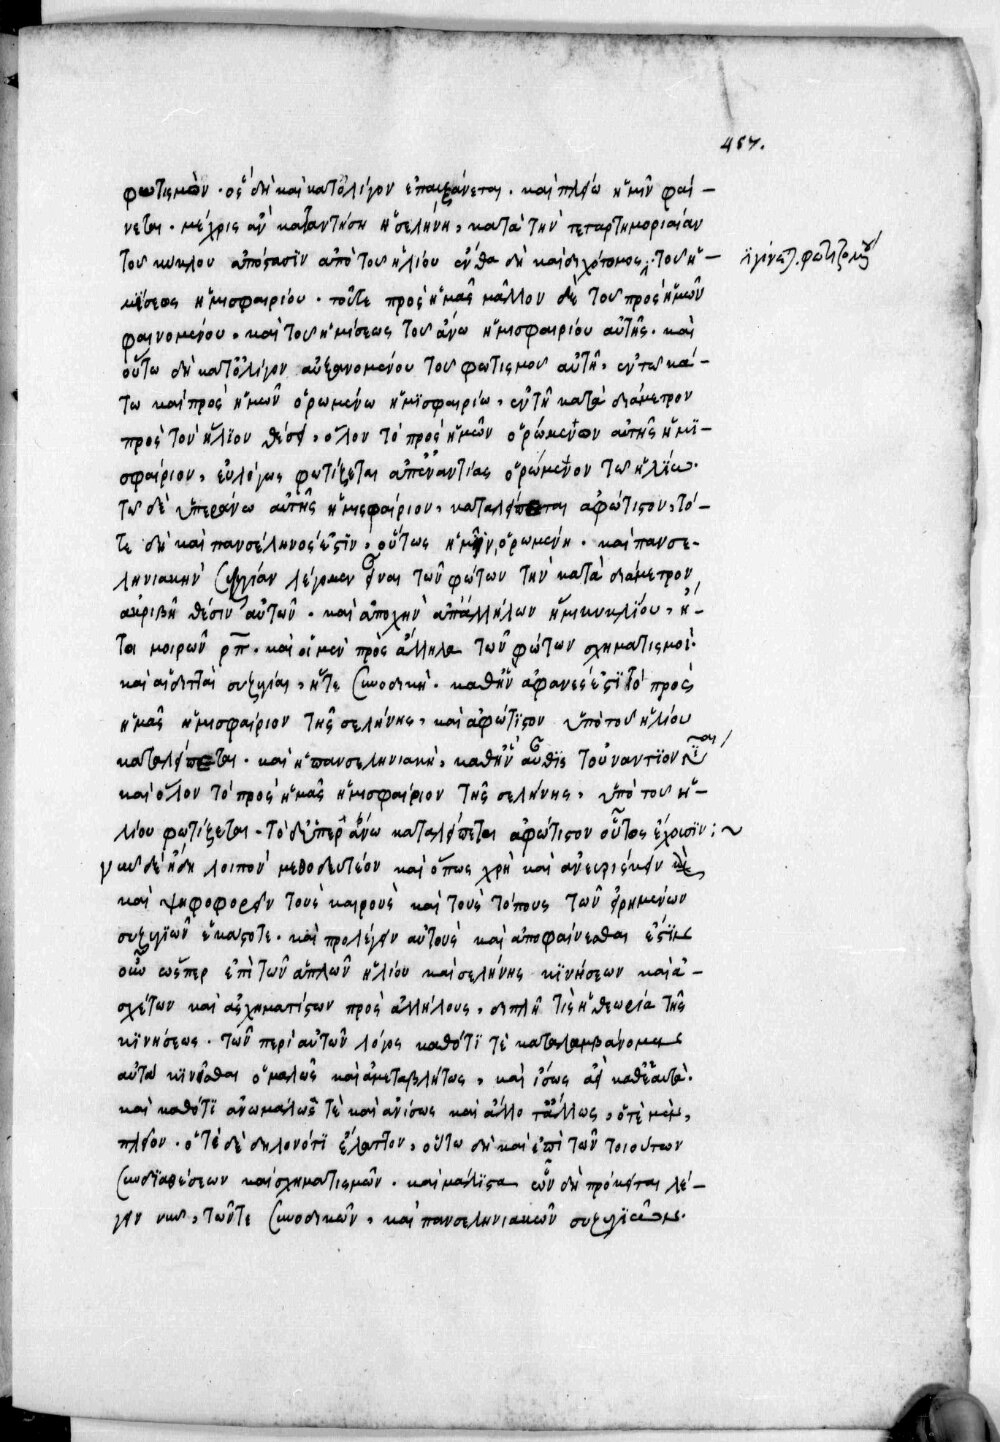 457.
φωτισμὸν· ὃς δὴ καὶ κατολίγον ἐπαυξάνεται· καὶ πλείω ἡμῖν φαί-
νεται· μέχρις ἂν καταντήση ἡ σελήνη, κατὰ τὴν τεταρτημοριαίαν
τοῦ κύκλου ἀπόστασϊν ἀπὸ τοῦ ἡλίου ἔνθα δὴ καὶ διχότομος, τοῦ ἡ-
ϊ γίνεται φωτιζομένου
μίσεος ἡμισφαιρίου· τοῦτε πρὸς ἡμᾶς μᾶλλον δὲ τοῦ πρὸς ἡμῶν
φαινομένου, καὶ τοῦ ἡμίσεως τοῦ ἄνω ἡμισφαιρίου αὐτῆς· καὶ
οὕτω δὴ κατολίγον αὐξανομένου τοῦ φωτισμοῦ αὐτῆ, ἐν τῶ κά-
τω καὶ πρὸς ἡμῶν ὁρωμένω ἡμϊσφαιρίω, ἐν τῆ κατὰ διάμετρον
πρὸς τὸν ἥλϊον θέσει, ὅλον τὸ πρὸς ἡμῶν ὁρώμενον αὐτῆς ἡμϊ-
σφαίριον, εὐλόγως φωτίζεται ἀπεναντίας ὁρώμενον τῶ ἡλίω·
τὸ δὲ ὑπεράνω αὐτῆς ἡμισφαίριον, καταλείπεται ἀφώτιστον, τό-
τε δὴ καὶ πανσέληνος ἐστϊν, οὕτως ἡμῖν ὁρωμένη· καὶ πανσε-
ληνιακὴν συζυγίαν λέγομεν εἶναι τῶν φώτων τὴν κατὰ διάμετρον
ἀκριβῆ θέσιν αὐτῶν· καὶ ἀποχὴν ἀπαλλήλων ἡμικυκλίου, ἤ-
τοι μοιρῶν ρπ· καὶ οἱ μὲν πρὸς ἄλληλα τῶν φώτων σχηματισμοί·
καὶ αἱ διτταὶ συζυγίαι, ἥτε συνοδικὴ· καθἣν ἀφανές ἐστϊ τὸ πρὸς
ἡμᾶς ἡμισφαίριον τῆς σελήνης, καὶ ἀφώτϊστον ὑπὸ τοῦ ἡλίου
καταλείπεται· καὶ ἡ πανσεληνιακὴ, καθἣν αὖθϊς τοὐναντίον
καὶ ὅλον τὸ πρὸς ἡμᾶς ἡμισφαίριον τῆς σελήνης, ὑπὸ τοῦ ἡ-
λίου φωτίζεται· τὸ δὑπερ ἄνω καταλείπεται ἀφώτιστον οὕτως ἔχουσϊν: ~
νῦν δὲ ἤδη λοιπὸν μεθοδευτέον καὶ ὅπως χρὴ καὶ ἀνευρίσκειν
καὶ ψηφοφορεῖν τοὺς καιροὺς καὶ τοὺς τόπους τῶν εἰρημένων
συζυγϊῶν ἑκάστοτε· καὶ προλέγειν αὐτοὺς καὶ ἀποφαίνεσθαι ἐστϊν
οὖν ὥσπερ ἐπὶ τῶν ἁπλῶν ἡλίου καὶ σελήνης κϊνήσεων καὶ ἀ-
σχέτων καὶ ἀσχηματίστων πρὸς ἀλλήλους, διπλῆ τίς ἡ θεωρία τῆς
κϊνήσεως· τῶν περὶ αὐτῶν λόγος καθότϊ τὲ καταλαμβάνομεν
αὐτὰ κϊνεῖσθαι ὁμαλῶς καὶ ἀμεταβλήτως, καὶ ἴσως ἀεὶ καθεαυτὰ·
καὶ καθότϊ ἀνωμάλως τὲ καὶ ἀνίσως καὶ ἄλλο τἄλλως, ὁτὲ μὲν,
πλεῖον· ὁτὲ δὲ δηλονότϊ ἔλαττον, οὕτω δὴ καὶ ἐπὶ τῶν τοιούτων
συνδϊαθέσεων καὶ σχηματισμῶν· καὶ μάλϊστα ὧν δὴ πρόκειται λέ-
γειν νῦν, τῶντε συνοδικῶν, καὶ πανσεληνιακῶν συζυγϊῶν·